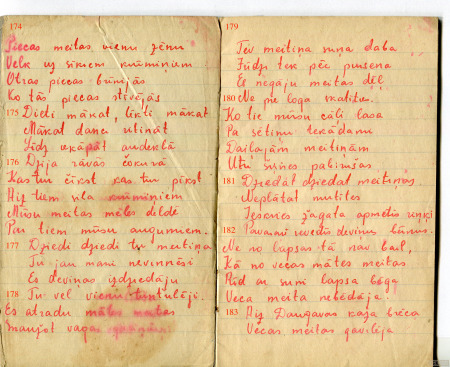 174
Piecas meitas vienu zēnu
Velk uz sīkiem krūmiņiem
Otras piecas būnējās
Ko tās piecas strīvējās
175 Diedi mākat, lēkti mākat
Mākat danci utināt
Līdz izkāpāt
176 Dzija rāvās čokurā
Kas tur čīkst kas tur pīkst
Aiz tiem sīla krūmiņiem
Mūsu meitas mēles deldē
Par tiem mūsu augumiem.
177 Dziedi dziedi tu meitiņa
Tu jau mani nevinnēsi
Es deviņas izdziedāju
178 Tu vēl vienu
Es atradu mātes meitas
Mauļot vagai
179
Tev meitiņa suņa daba
Līdz tek pēc puišena
Es negāju meitas dēļ
180 Ne pie loga skatīties.
Ko tie mūsu cāļi lasa
Pa sētiņu tekādami
Dailajām meitiņām
Utu suņas pabirušas
181 Dziedāt dziedat meitiņas
Neplātat mutītes
Ieskries žagata apmetīs riņķi
182 Pavasarī izvedīs deviņus bērnus.
Ne no lapsas tā nav bail,
Kā no vecas mātes meitas
Rīd ar suni lapsa bēg
Veca meita nebēdāja.
183 Aiz Daugavas kaza brēca
Vecas meitas gavilēja